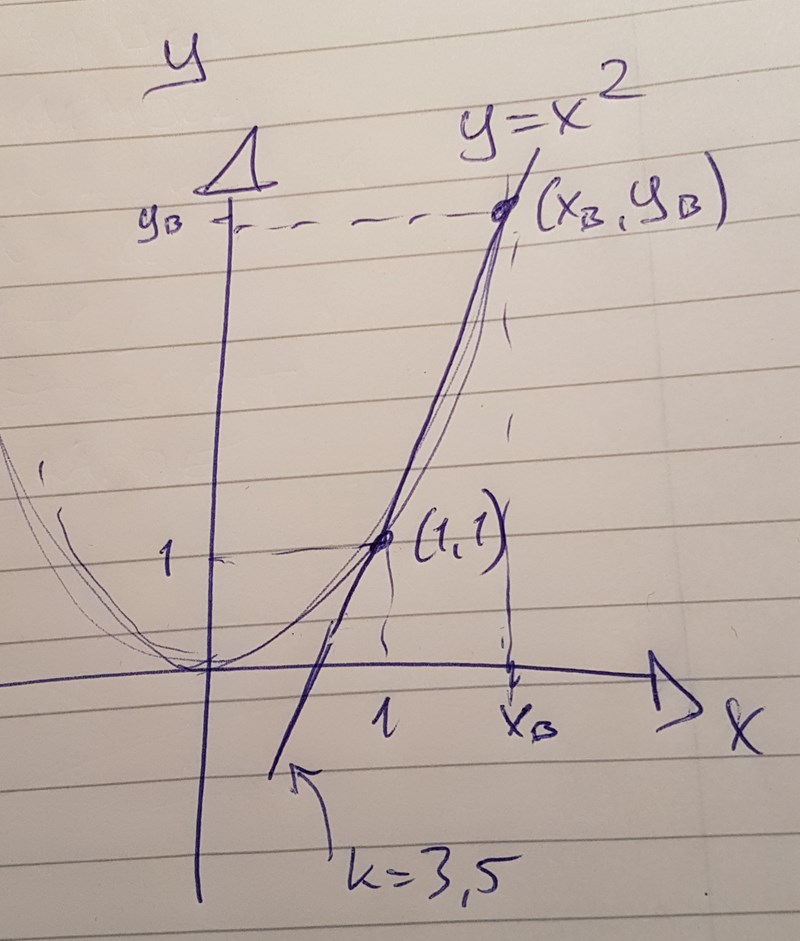 y
y=x²
y_B
(x_B, y_B)
1
(1,1)
1
x_B
x
k=3,5